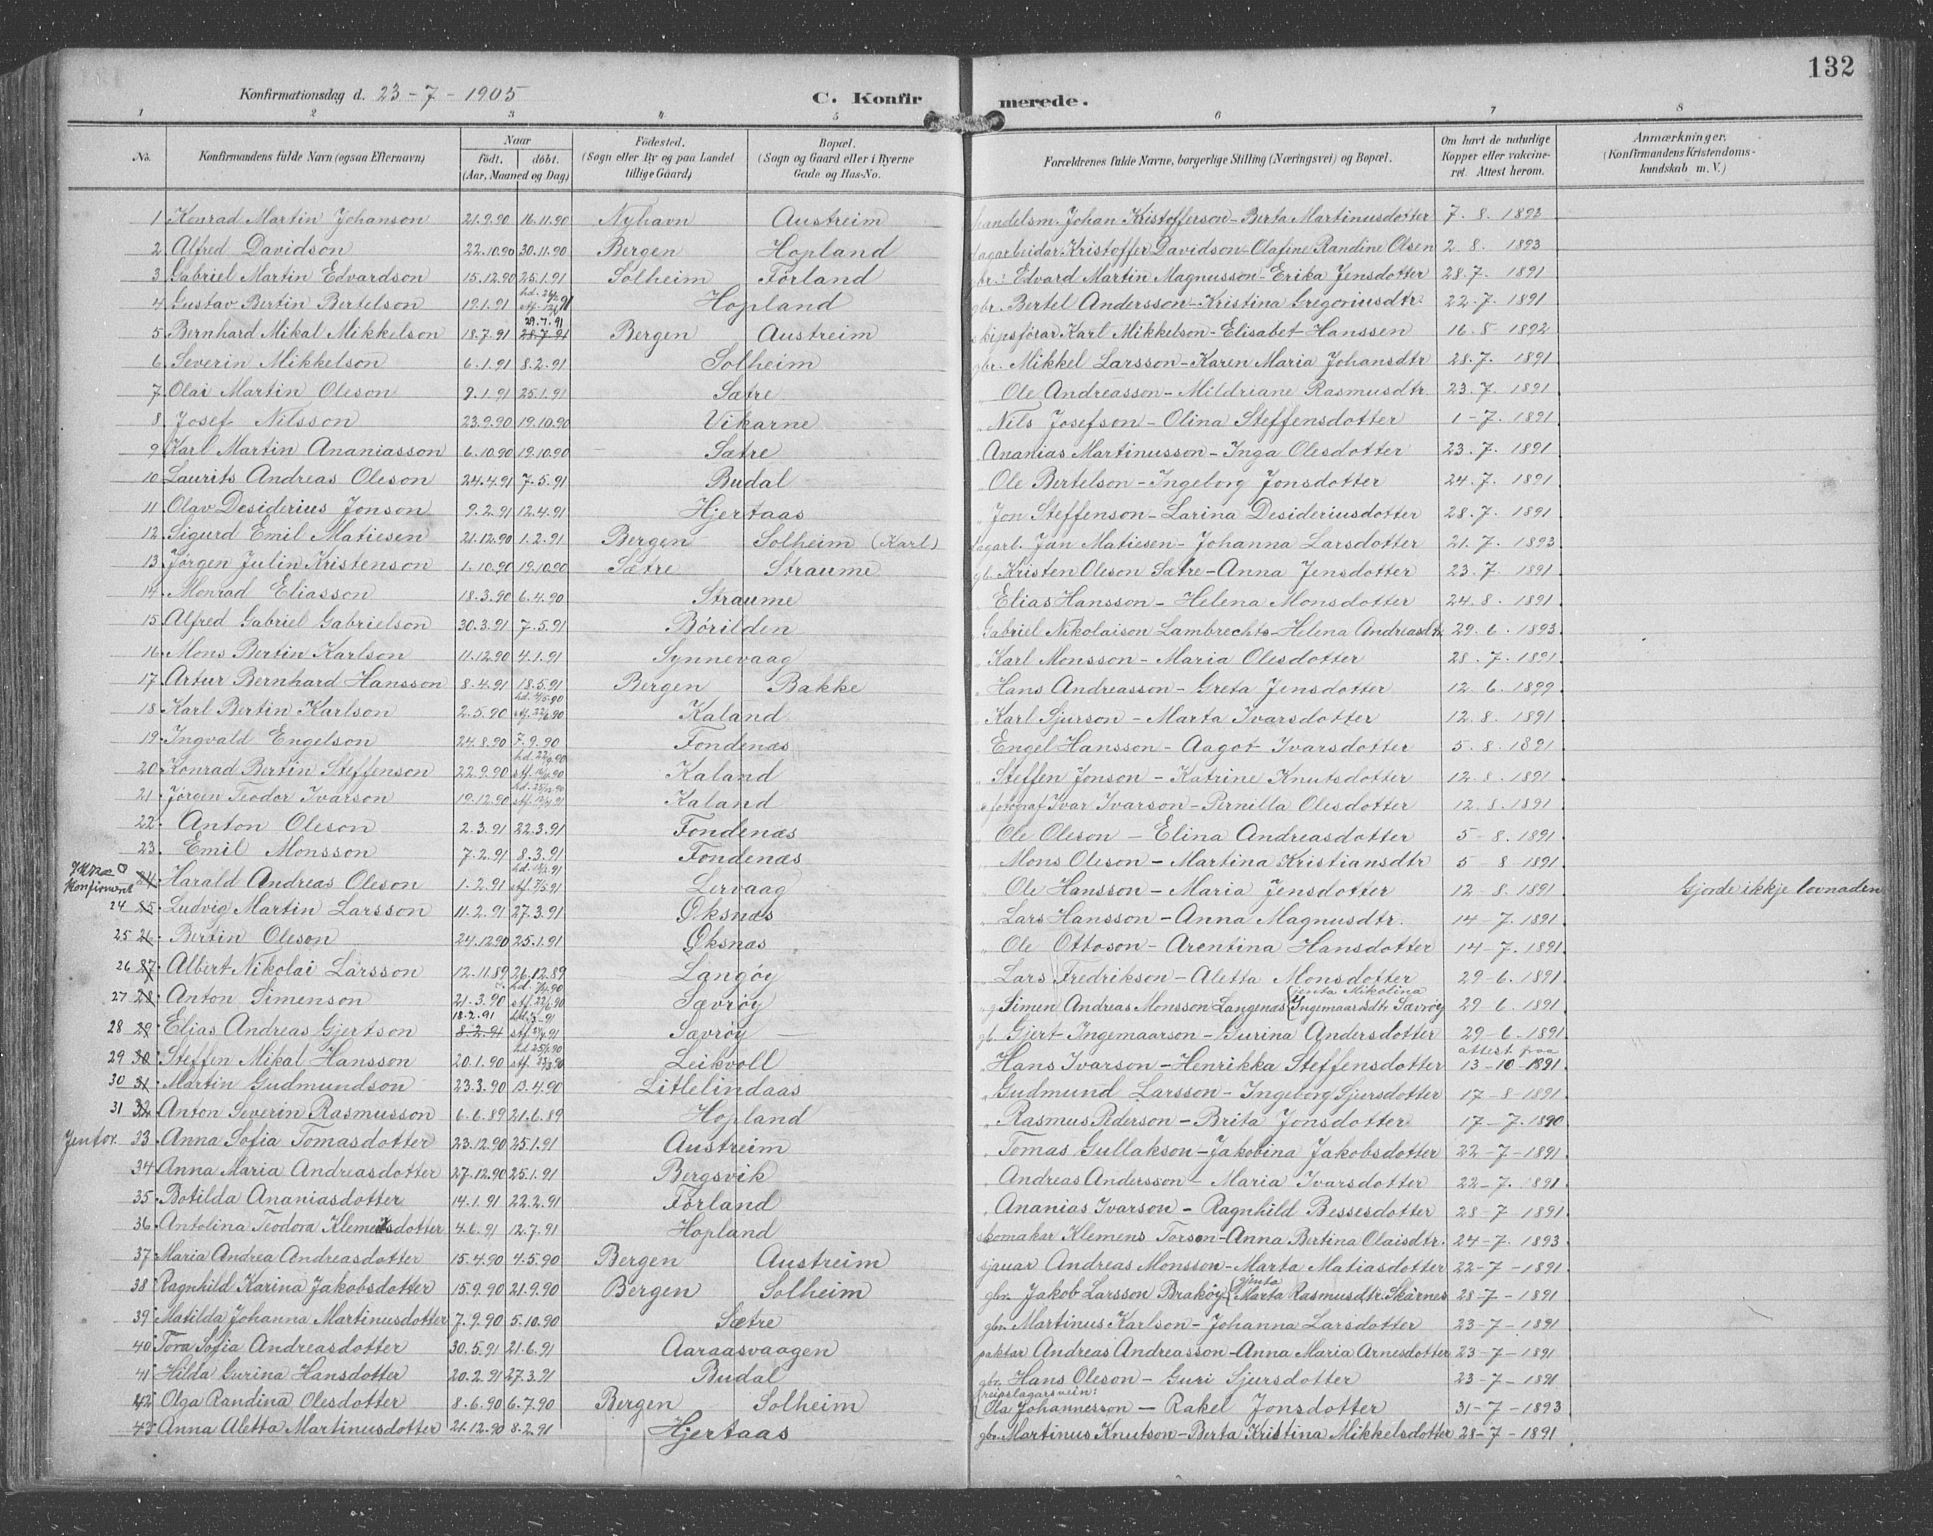 132
Konfirmationsdag d. 23-7-1905
C. Konfirmerede.
1 2 3 4 5 6 7 8
No. | Konfirmandens fulde Navn (ogsaa Efternavn) | Naar født. døbt. (Aar, Maaned og Dag) | Fødested. (Sogn eller By og paa Landet tillige Gaard) | Bopæl. (Sogn og Gaard eller i Byerne Gade og Hus-No. | Forældrenes fulde Navne, borgerlige Stilling (Næringsvei) og Bopæl. | Om havt de naturlige Kopper eller vakcineret. Attest herom. | Anmærkninger. (Konfirmandens Kristendomskundskab m. V.)
1 Konrad Martin Johanson 21.9.90 16.11.90 Nyhavn Austreim handelsm. Johan Kristofferson - Berta Martinusdotter 7. 8. 1892
2 Alfred Davidson 22.10.90 30.11.90 Bergen Hopland dagarbeidar Kristoffer Davidson - Olafine Randine Olsen 2. 8. 1893
3 Gabriel Martin Edvardson 15.12.90 25.1.91 Solheim Førland br.: Edvard Martin Magnusson - Erika Jensdotter 28.7. 1891
4 Gustav Bertin Bertelson 19.1.91 Hopland gbr. Bertel Andersson - Kristina Gregoriusdtr. 22.7. 1891
5 Bernhard Mikal Mikkelson 18.7.91 29.7.91 28.7.91 Bergen Austreim skipsførar Karl Mikkelson - Elisabet Hanssen 16.8 1892
6 Severin Mikkelson 6.1.91 8.2.91 Solheim gbr. Mikkel Larsson - Karen Maria Johansdtr 28.7. 1891
7 Olai Martin Oleson 9.1.91 25.1.91 Sætre " Ole Andreasson - Mildriane Rasmusdtr. 23.7. 1891
8 Josef Nilsson 23.9.90 19.10.90 Vikarne " Nils Josefson - Olina Steffensdotter 1-7. 1891
9 Karl Martin Ananiasson 6.10.90 19.10.90 Sætre " Ananias Martinusson - Inga Olesdotter 23.7. 1891
10 Laurits Andreas Oleson 24.4.91 7.5.91 Budal Ole Bertelson - Ingeborg Jonsdotter 24.7. 1891
11 Olav Desiderius Jonson 9.2.91 12.4.91 Hjertaas " Jon Steffenson - Larina Desideriusdotter 28.7. 1891
12 Sigurd Emil Matiesen 21.12.90 1.2.91 Bergen Solheim (Karl) dagarb. Jan Matiesen - Johanna Larsdotter 21.7. 1893
13 Jørgen Julin Kristenson 1.10.90 19.10.90 Sætre Straume gb. Kristen Oleson Sætre - Anna Jensdotter 23.7. 1891
14 Monrad Eliasson 18.3.90 6.4.90 Straume Elias Hansson - Helena Monsdotter 24.8. 1891
15 Alfred Gabriel Gabrielson 30.3.91 7.5.91 Børilden Gabriel Nikolaison Lambrechts - Helena Andreasdtr. 29.6. 1893
16 Mons Bertin Karlson 11.12.90 4.1.91 Synnevaag " Karl Monsson - Maria Olesdotter 28.7. 1891
17 Artur Bernhard Hansson 8.4.91 18.5.91 Bergen Bakke " Hans Andreasson - Greta Jensdotter 12.6. 1899
18 Karl Bertin Karlson 2.5.90 Kaland " Karl Sjurson - Marta Ivarsdotter 12.8. 1891
19 Ingvald Engelson 24.8.90 7.9.90 Fondenæs Engel Hansson - Aagot Ivarsdotter 5.8. 1891
20 Konrad Bertin Steffenson 22.9.90 Kaland " Steffen Jonson - Katrine Knutsdotter 12.8. 1891
21 Jørgen Teodor Ivarson 19.12.90 Kaland fotograf Ivar Ivarson - Pernilla Olesdotter 12.8. 1891
22 Anton Oleson 2.3.91 22.3.91 Fondenæs " Ole Oleson - Elina Andreasdotter 5-8. 1891
23 Emil Monsson 7.2.91 8.3.91 Fondenæs " Mons Oleson - Martina Kristiansdtr 5-8 1891
Konfirmert 24 Harald Andreas Oleson 1.2.91 Lervaag Ole Hansson - Maria Jensdotter 12-8. 1891 Gjorde ikkje lovnaden
24 25 Ludvig Martin Larsson 11.2.91 27.3.91 Øksnæs " Lars Hansson - Anna Magnusdtr. 14-7. 1891
25 26 Bertin Oleson 24.12.90 25.1.91 Øksnæs " Ole Ottoson - Arentina Hansdotter 14-7. 1891
26 27 Albert Nikolai Larsson 12.11.89 26.12.89 Langøy " Lars Fredrikson - Aletta Monsdotter 29-6. 1891
27 28 Anton Simenson 21.3.90 Sævrøy Simen Andreas Monsson Langenæs (jenta Mikolina Ingemaarsdtr Sævrøy 29-6. 1891
28 29 Elias Andreas Gjertson 18.2.91 8.2.91 Sævrøy gb. Gjert Ingemaarson - Gurina Andersdotter 29-6. 1891
29 30 Steffen Mikal Hansson 20.1.90 Leikvoll " Hans Ivarson - Henrikka Steffensdotter attest fraa 13-10-1891
30 31 Martin Gudmundson 23.3.90 13.4.90 Litlelindaas " Gudmund Larsson - Ingeborg Sjursdotter 17-8-1891
31 32 Anton Severin Rasmusson 6.6.89 21.6.89 Hopland " Rasmus Pederson - Brita Jonsdotter 17-7.1890
Jentor. 33 Anna Sofia Tomasdotter 23.12.90 25.1.91 Austreim " Tomas Gullakson - Jakobina Jakobsdotter 22-7-1891
34 Anna Maria Andreasdotter 27.12.90 25.1.91 Bergsvik " Andreas Andersson - Maria Ivarsdotter 22-7. 1891
35 Botilda Ananiasdotter 14.1.91 22.2.91 Førland " Ananias Ivarson - Ragnhild Bessesdotter 28-7 1891
36 Antolina Teodora Klemetsdotter 4.6.91 12.7.91 Hopland skomakar Klemens Torson - Anna Bertina Olaisdtr. 24-7. 1893
37 Maria Andrea Andreasdotter 15.4.90 4.5.90 Bergen Austreim sjauar Andreas Monsson - Marta Matiasdotter 22-7-1891
38 Ragnhild Karina Jakobsdotter 15.9.90 21.9.90 Bergen Solheim gbr. Jakob Larsson Brakøy (gjenta Marta Rasmusdtr. Skarnes 28-7-1891
39 Matilda Johanna Martinusdotter 7.9.90 5.10.90 Sætre gbr. Martinus Karlson - Johanna Larsdotter 23-7-1891
40 Tora Sofia Andreasdotter 30.5.91 21.6.91 Aaraasvaagen paktar Andreas Andreasson - Anna Maria Arnesdotter 23-7-1891
41 Hilda Gurina Hansdotter 20.2.91 27.3.91 Budal gbr. Hans Oleson - Guri Sjursdotter 23-7-1891
42 Olga Randina Olesdotter 8.6.90 6.7.90 Bergen Solheim (reipslagarsvein: Ola Johannesson - Rakel Jonsdotter 31-7-1893
43 Anna Aletta Martinusdotter 21.12.90 8.2.91 Hjertaas gbr. Martinus Knutson - Berta Kristina Mikkelsdotter 28-7-1891